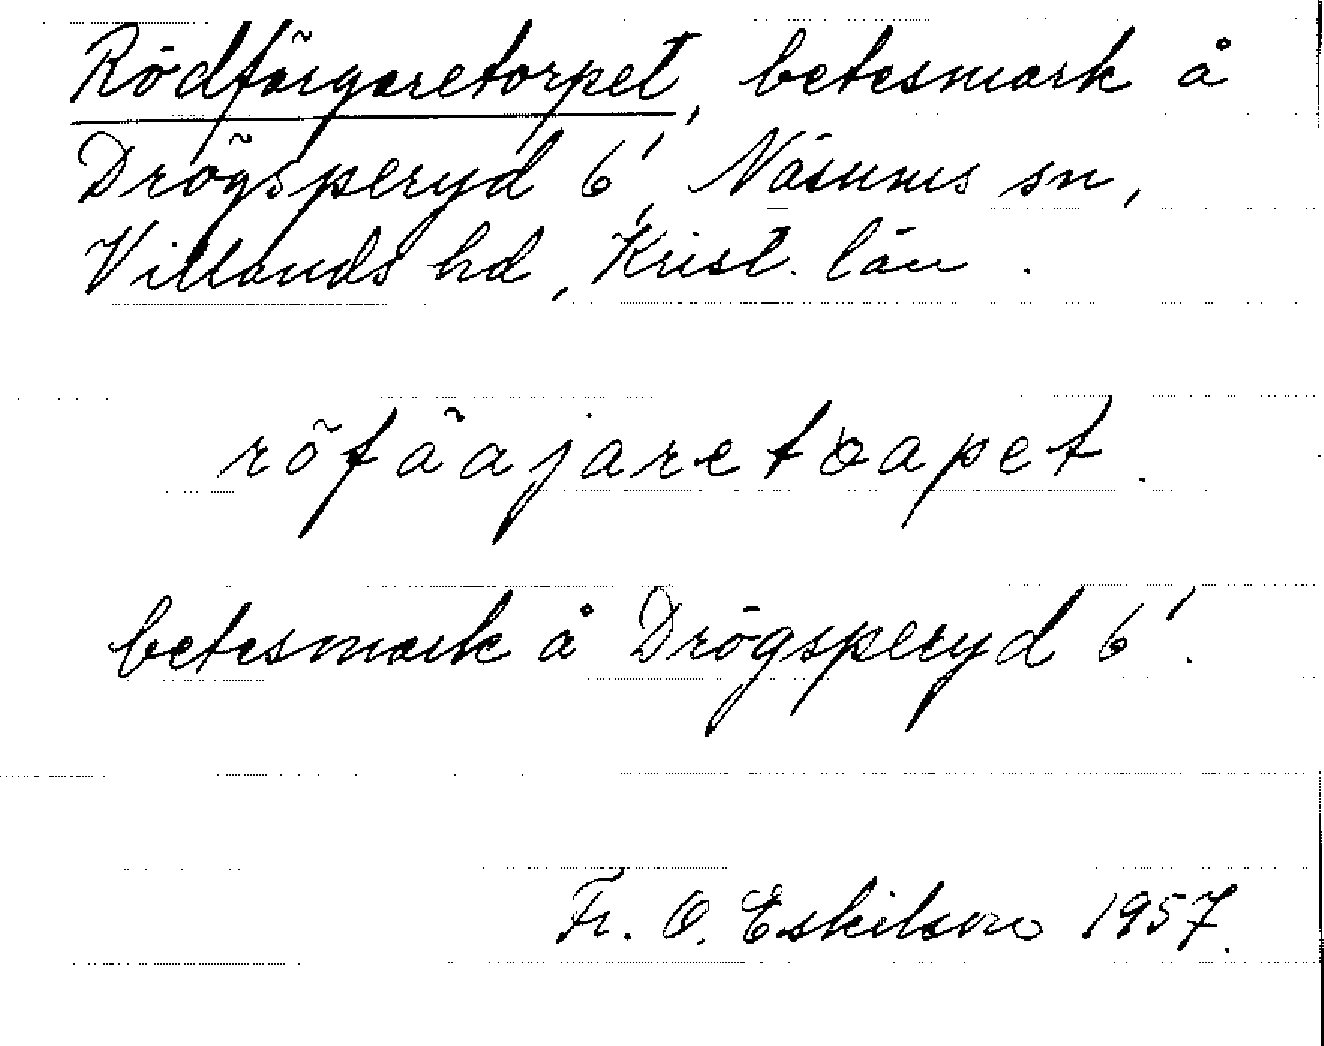 Rödfärgaretorpet, betesmark å
Drögsperyd 6', Näsums sn,
Villands hd, Krist. län.
röfäajaretoapet.
betesmark å Drögsperyd 6'.
Fr. O. Eskilsson 1957.